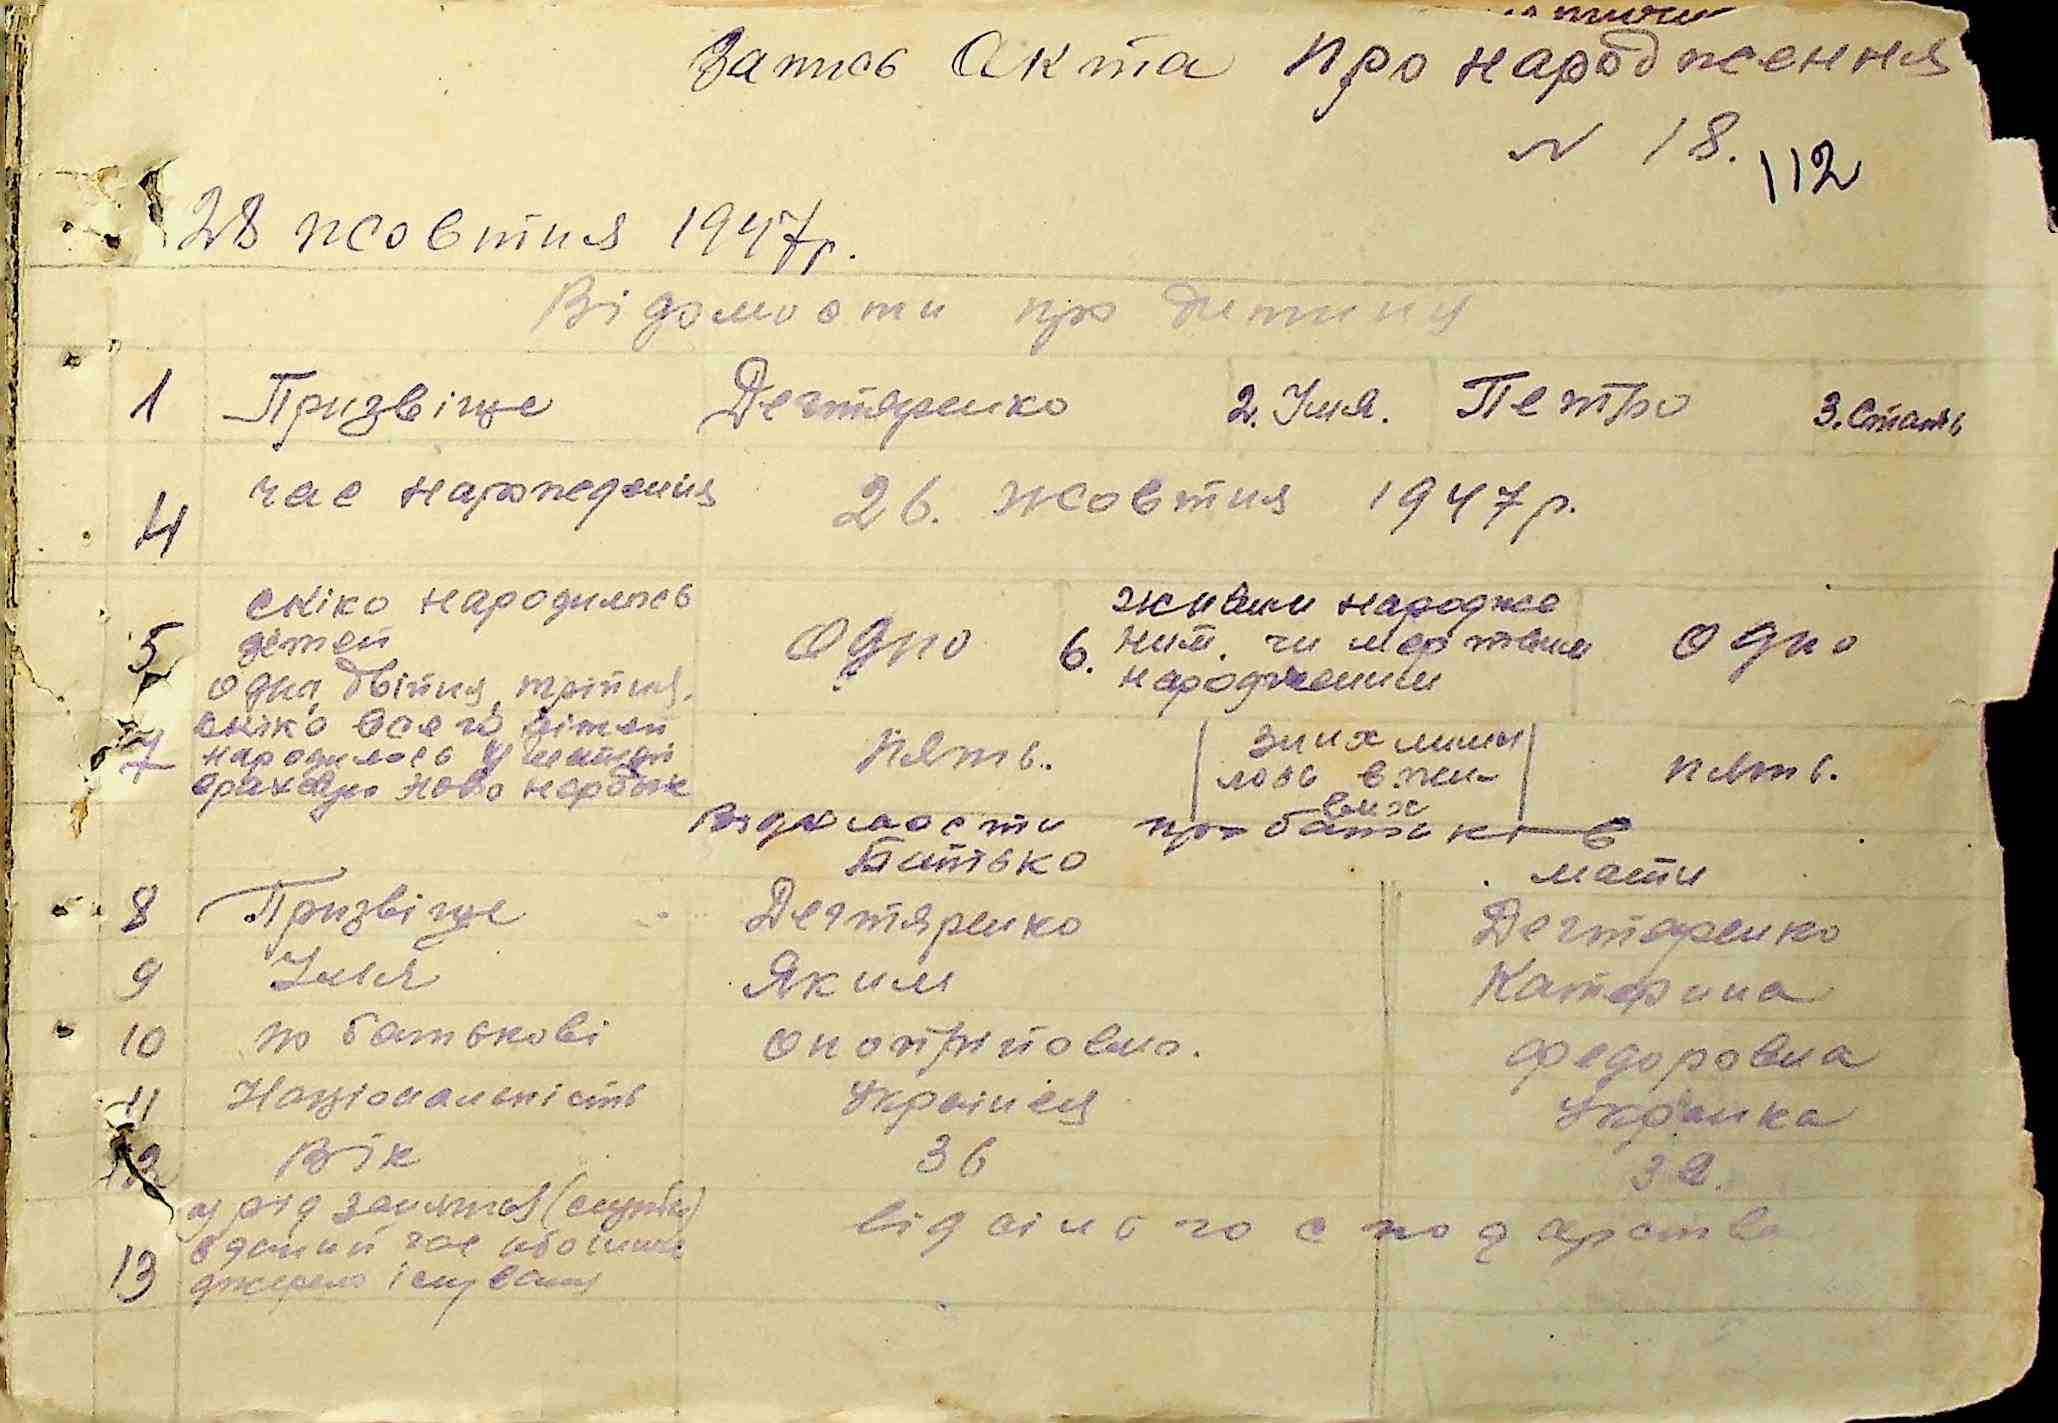 Запись Акта Про народження
N 18.
112
28 жовтня 1947р.
Відомости про дитиня
1 Призвіще Дегтяренко 2. Імя. Петро 3. Стать
4 час нарожедения 26. жовтня 1947р.
5 скіко народилось детей одна, двійня, трійня. Одно 6. живим народже ним. чи мертвим народженим Одно
7 скіко всего дітей народилось у матері Пять. зних лиши лось вжи- вих пять.
Відомости про батьків
Батько мати
8 Призвіще Дегтяренко Дегтяренко
9 Імья Яким Катерина
10 по батькові Федоровна
11 Національність Украінец Украінка
12 Вік 36 32.
13 а) рід заняття (служби) в даний час або інше джерело існування від сільгосподарства